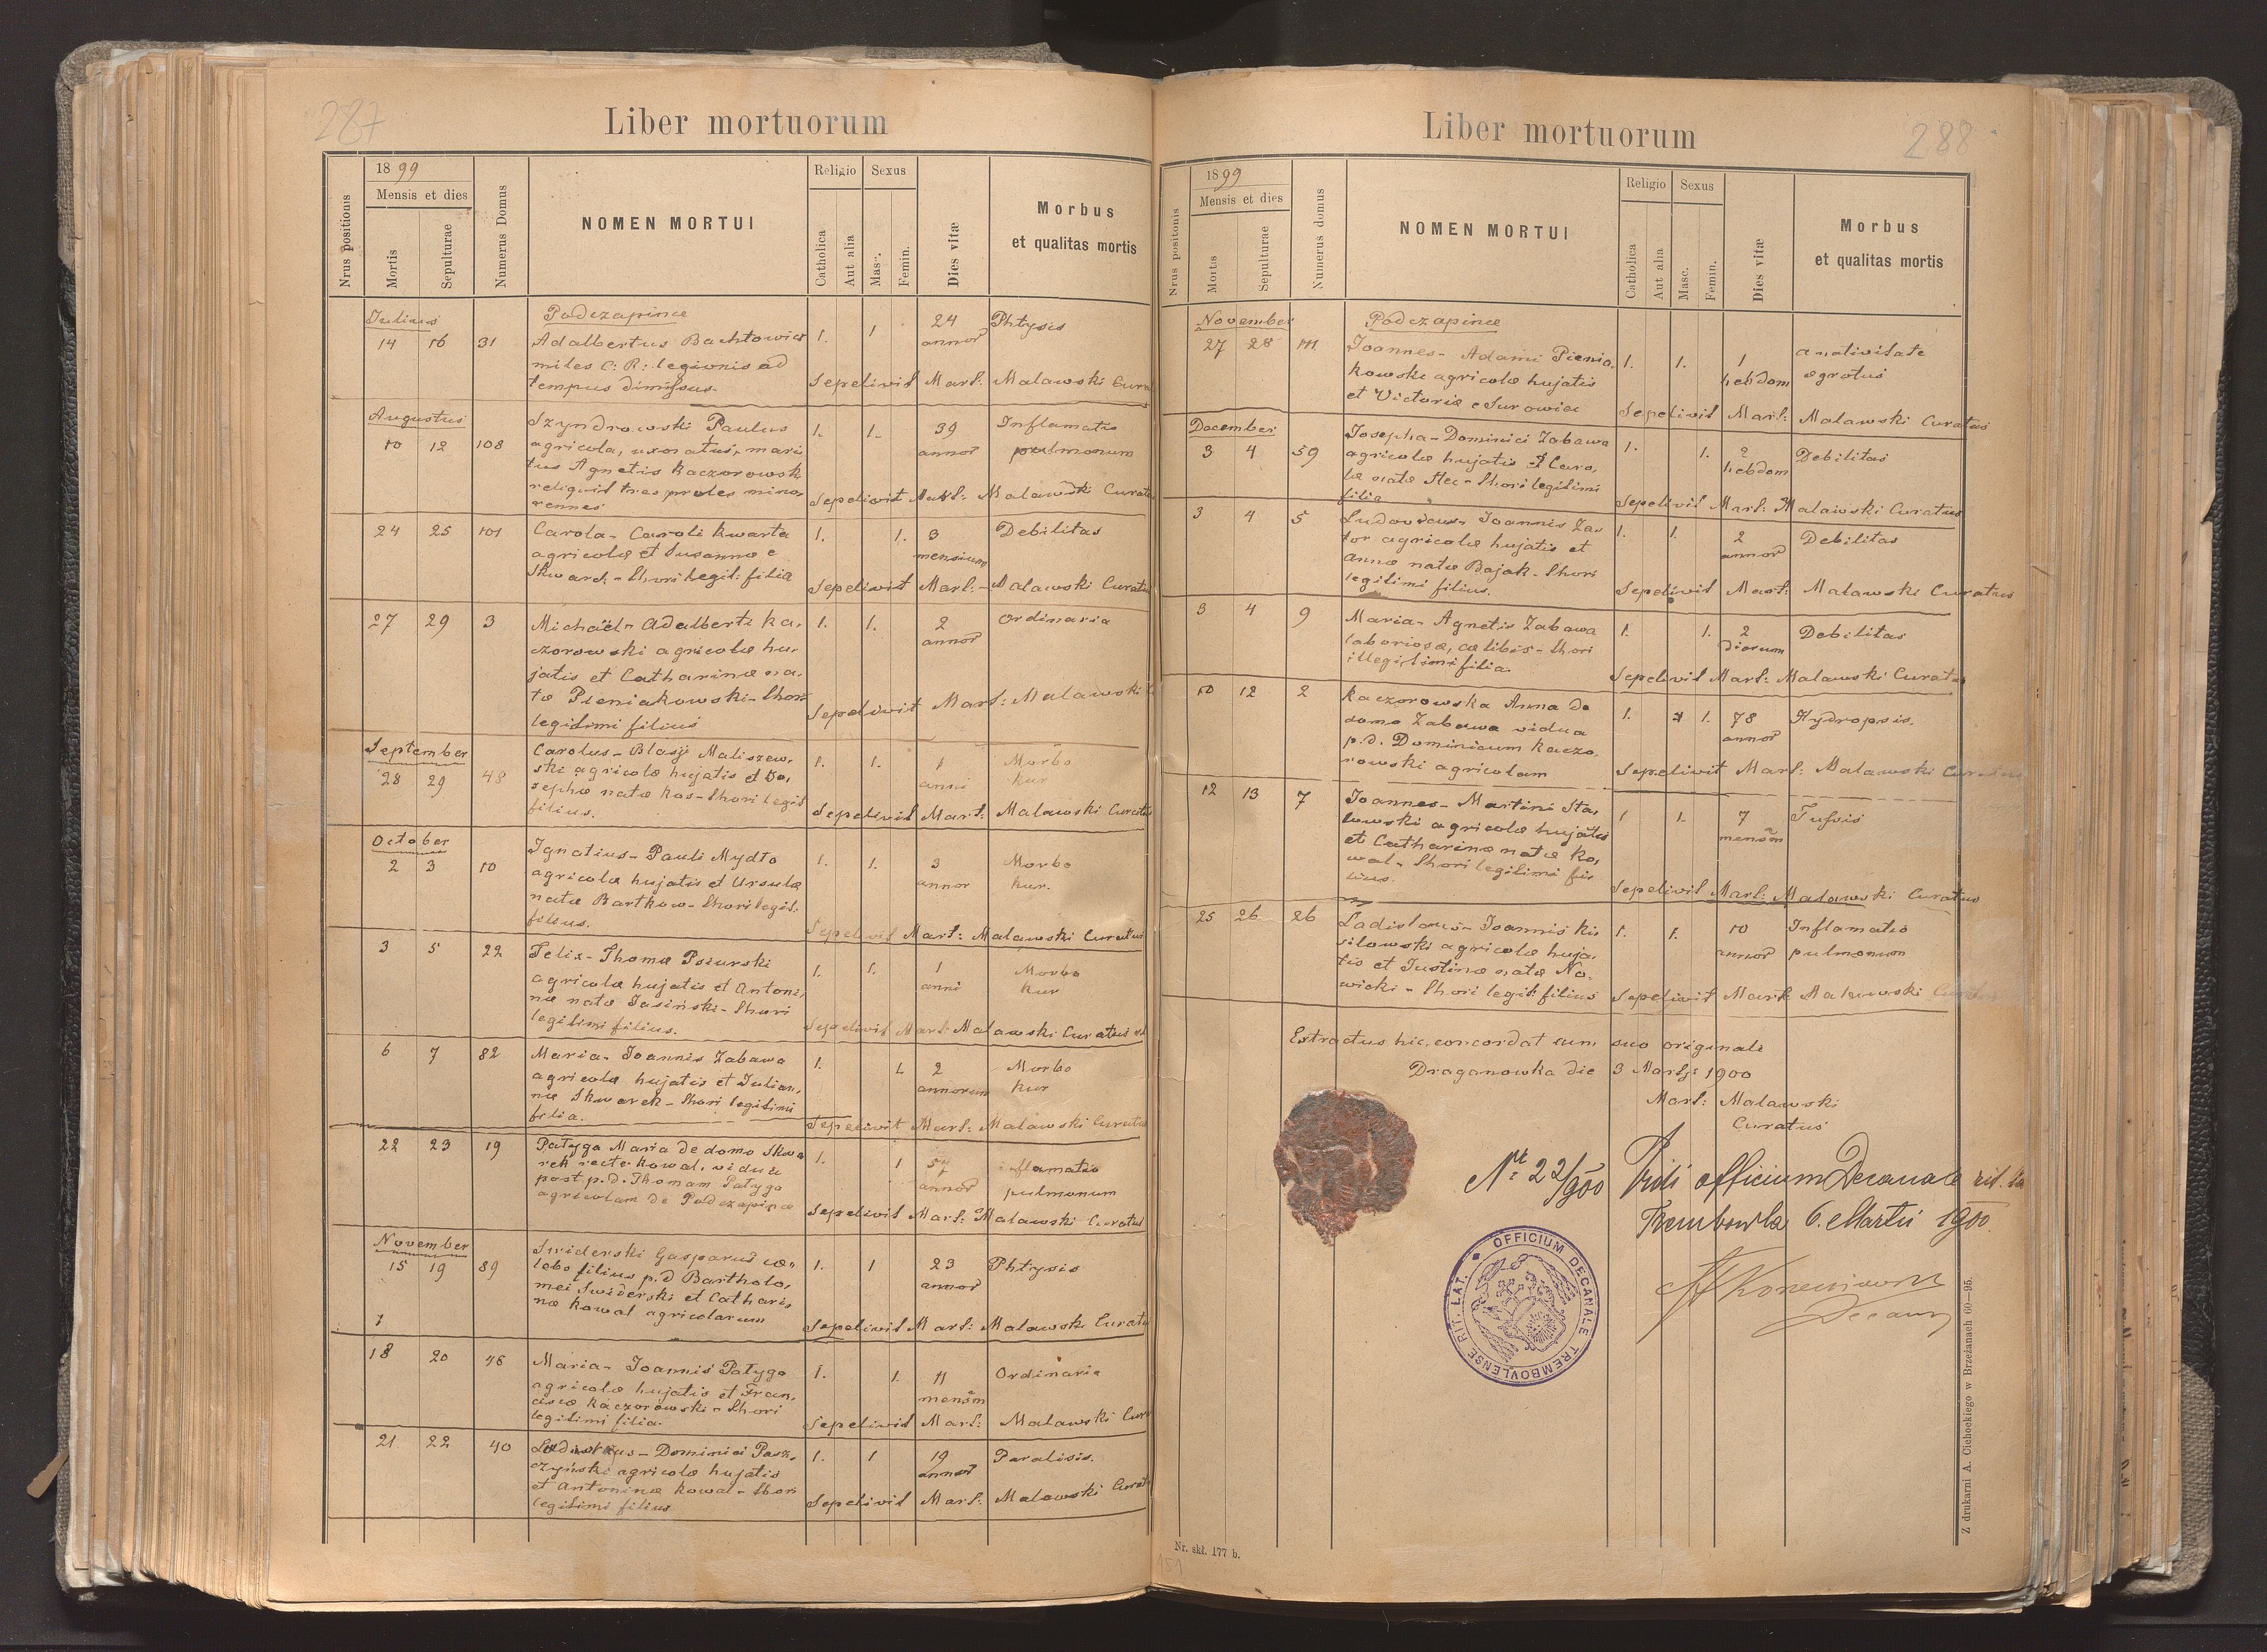 287
Liber mortuorum
Nrus positionis
1899
Mensis et dies
Mortis
Sepulturae
Numerus Domus
NOMEN MORTUI
Religio
Catholica
Aut alia
Sexus
Masc.
Femin.
Dies vitæ
Morbus
et qualitas mortis
Julius
Podczapince
14 16 31 Adalbertus Bachtowicz 1. 1 24 Phtysis
miles C: R: legionis ad annor
tempus dimissus. Sepelivit Mart: Malawski Curat
Augustus
10 12 108 Szyndrowski Paulus 1. 1. 39 Inflamatio
agricola, uxoratus, mari annor pulmonum
tus Agnetis Kaczorowsk
reliquit tres proles mino, Sepelivit Mart: Malawski Curatus
rennes
24 25 101 Carola - Caroli Kwarta 1. 1. 3 Debilitas
agricolæ et Susannæ e mensium
Skwarek - thori legit: filia Sepelivit Mart: Malawski Curatus
27 29 3 Michaël - Adalberti Ka, 1. 1. 2 Ordinaria
czorowski agricolæ hu, annor
jatis et Catharinæ na,
tæ Pieniakowski - thori Sepelivit Mart: Malawski
legitimi filius
September
28 29 48 Carolus - Blasij Maliszew, 1. 1. 1 Morbo
ski agricolæ hujatis et Jo, anni kur
sephæ natæ Kos - thori legit
filius. Sepelivit Mart: Malawski Curatus
October
2 3 10 Ignatius - Pauli Mydło 1. 1. 3 Morbo
agricolæ hujatis et Ursulæ annor kur.
natæ Bartkow - thori legit.
filius. Sepelivit Mart: Malawski Curatus
3 5 22 Felix - Thomæ Psiurski 1. 1. 1 Morbo
agricolæ hujatis et Antoni, anni kur
næ natæ Jasiński - thori
legitimi filius. Sepelivit Mart: Malawski Curatus
6 7 82 Maria - Joannis Zabawa 1. 1. 2 Morbo
agricolæ hujatis et Julian, annorum kur
næ Skwarek - thori legitimi
filia. Sepelivit Mart: Malawski Curatus
22 23 19 Patyga Maria de domo Skwa 1. 1 57 inflamatio
rek recte Kowal, vidua annor pulmonum
post p. d. Thomam Patyga
agricolam de Podczapince Sepelivit Mart: Malawski Curatus
November
15 19 89 Swiderski Gasparus cæ, 1. 1 23 Phtysis
lebs filius p. d Bartholo, annor
mei Swiderski et Cathari
næ Kowal agricolarum Sepelivit Mart: Malawski Curatus
18 20 46 Maria - Joannis Patyga 1. 1. 11 Ordinaria
agricolæ hujatis et Fran, mensm
ciscæ Kaczorowski - thori
legitimi filia. Sepelivit Mart: Malawski Cura
21 22 40 Dominici Pasz, 1. 1 19 Paralisis.
czyński agricolæ hujatis annor
et Antoninæ Kowal - thori
legitimi filius Sepelivit Mart: Malawski Curat
288
Liber mortuorum
Nrus positonis
1899
Mensis et dies
Mortis
Sepulturae
Numerus domus
NOMEN MORTUI
Religio
Catholica
Aut alia
Sexus
Masc.
Femin.
Dies vitæ
Morbus
et qualitas mortis
November
Podczapince
27 28 111 Joannes - Adami Pienia, 1. 1. 1 a nativitate
kowski agricolæ hujatis hebdom ægrotus
et Victoriæ e Surowiec Sepelivit Mart: Malawski Curatus
December
3 4 59 Josepha - Dominici Zabawa 1. 1. 2 Debilitas
agricolæ hujatis et Caro, hebdom
læ natæ Stec - thori legitimi
filia Sepelivit Mart: Malawski Curatus
3 4 5 Ludovicus - Joannis Za, 1. 1. 2 Debilitas
tor agricolæ hujatis et annor
Annæ natæ Bajak - thori
legitimi filius. Sepelivit Mart: Malawski Curatus
3 4 9 Maria - Agnetis Zabawa 1. 1. 2 Debilitas
laboriosæ, cælibis - thori dierum
illegitimi filia. Sepelivit Mart: Malawski Curatus
10 12 2 Kaczorowska Anna de 1. 1. 78 Hydropsis.
domo Zabawa vidua annor
p. d. Dominicum Kaczo,
rowski agricolam Sepelivit Mart: Malawski Curatus
12 13 7 Joannes - Martini Sta, 1 1. 7 Tussis
lowski agricolæ hujatis mensm
et Catharinæ natæ Ko,
wal - thori legitimi fi
lius. Sepelivit Mart: Malawski Curatus
25 26 26 Ladislaus - Joannis Ki 1. 1. 10 Inflamatio
silowski agricolæ huja, annor pulmonum
tis et Justinæ natæ No,
wicki - thori legit: filius Sepelivit Mart: Malawski Curatus
Extractus hic concordat cum suo originale
Draganowka die 3 Martji 1900
Mart: Malawski
Curatus
Nr. 22/900 Vidi Officium Decanale rit. la
Trembowla 6. Martii 1900.
Decanus
OFFICIUM DECANALE TREMBOVLENSE RIT. LAT.
Z drukarni A. Cichockiego w Brzeżanach 60—95.
Nr. skł. 177 b.
151